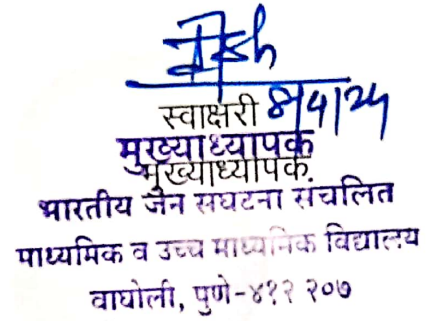 स्वाक्षरी 8/4/24
मुख्याध्यापक
मुख्याध्यापक.
भारतीय जैन संघटना संचलित
माध्यमिक व उच्च माध्यमिक विद्यालय
वाघोली, पुणे-४१२ २०७